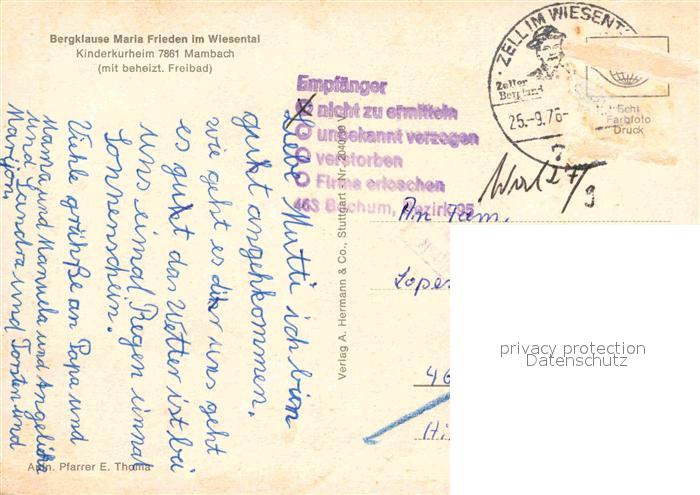 Bergklause Maria Frieden im Wiesental
Kinderkurheim 7861 Mambach
(mit beheizt. Freibad)
Liebe Mutti ich bin
guht angehkommen.
wie geht es dier uns geht
es guht das Wetter ist bei
uns eimal Regen einmal
Sonnenschein.
Viehle grühße an Papa und
Mama und Manuela und Angelicka
und Sandra und Torsten und
Marijon
Aufn. Pfarrer E. Thoma
Verlag A. Hermann & Co., Stuttgart
Empfänger
nicht zu ermitteln
unbekannt verzogen
verstorben
Firma erloschen
463 Bochum, Bezirk 95
ZELL IM WIESENT
Zeller
Bergland
25.-9.76-
7
Echt
Farbfoto
Druck
27/9
An Fam.
Lope
46
Hi
privacy protection
Datenschutz